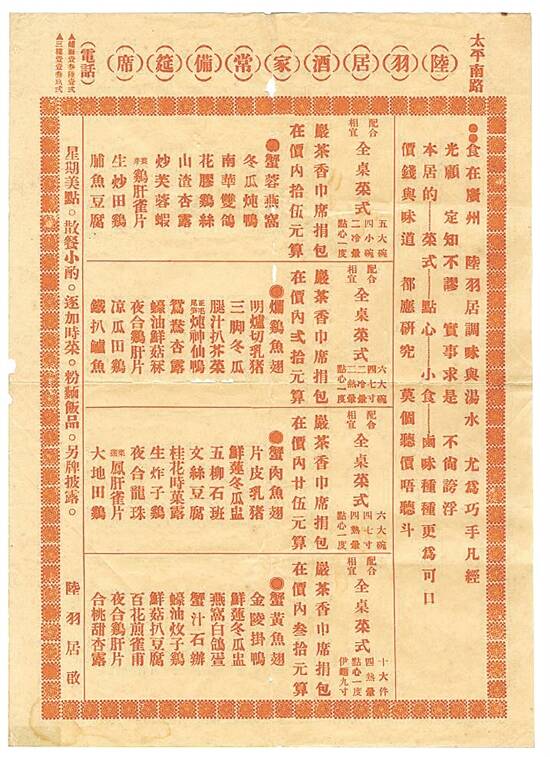 太平南路
陸羽居酒家常備筵席
電話
●●食在廣州 陸羽居調味與湯水 尤爲巧手凡經
光顧 定知不謬 實事求是 不尙誇浮
本居的——菜式——點心——小食——鹵味種種更爲可口
價錢與味道 都應硏究 莫個聽價唔聽斗
配合相宜
全桌菜式
五大碗
四小碗
二冷葷
點心一度
嚴茶香巾席捐包
在價內拾伍元算
●蟹蓉燕窩
冬瓜炖鴨
南華雙鴿
花膠鷄絲
山渣杏露
炒芙蓉蝦
鷄肝雀片
生炒田鷄
脯魚豆腐
配合相宜
全桌菜式
六大碗
四七寸
二冷葷
二熱葷
點心一度
嚴茶香巾席捐包
在價內弍拾元算
●爛鷄魚翅
明爐切乳猪
三脚冬瓜
腿汁扒芥菜
炖神仙鴨
鴛鴦杏露
蠔油鮮菇冧
夜合鷄肝片
凉瓜田鷄
鐵扒鱸魚
配合相宜
全桌菜式
六大碗
四七寸
四熱葷
點心一度
嚴茶香巾席捐包
在價內廿伍元算
●蟹肉魚翅
片皮乳猪
鮮蓮冬瓜盅
五柳石班
文絲豆腐
桂花時菓露
生炸子鷄
夜合龍珠
鳳肝雀片
大地田鷄
配合相宜
全桌菜式
十大件
四熱葷
點心一度
伊麵九寸
嚴茶香巾席捐包
在價內叁拾元算
●蟹黃魚翅
金陵掛鴨
鮮蓮冬瓜盅
燕窩白鴿蛋
蟹汁石班
蠔油炆子鷄
鮮菇扒豆腐
百花煎雀甫
夜合鷄肝片
合桃甜杏露
星期美點。散餐小酌。逐加時菜。粉麵飯品。另牌披露。
陸羽居啟